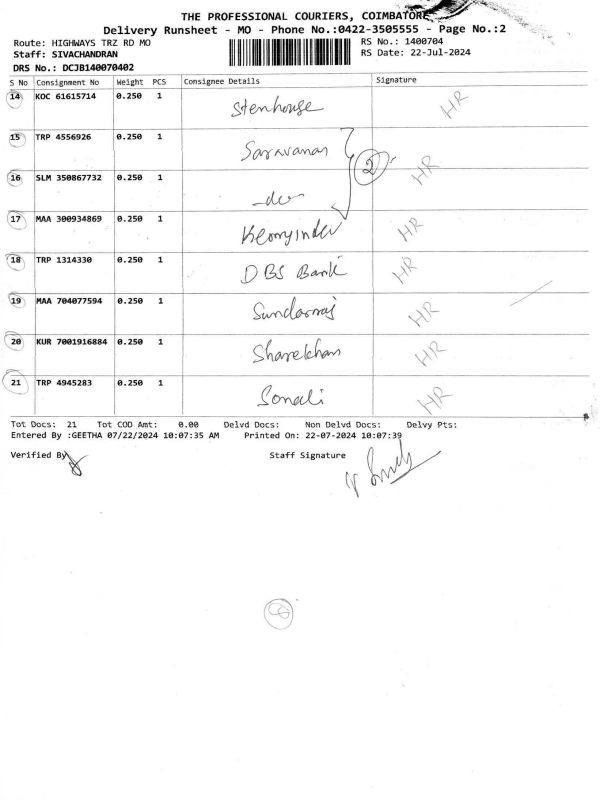 THE PROFESSIONAL COURIERS, COIMBATORE
Delivery Runsheet - MO - Phone No.:0422-3505555 - Page No.:2
Route: HIGHWAYS TRZ RD MO RS No.: 1400704
Staff: SIVACHANDRAN RS Date: 22-Jul-2024
DRS No.: DCJB140070402
S No Consignment No Weight PCS Consignee Details Signature
14 KOC 61615714 0.250 1 Stenhouse HR
15 TRP 4556926 0.250 1 Saravanan HR
2
16 SLM 350867732 0.250 1 -do-
17 MAA 300934869 0.250 1 HR
18 TRP 1314330 0.250 1 DBS Bank HR
19 MAA 704077594 0.250 1 Sundarraj HR
20 KUR 7001916884 0.250 1 Sharekhan HR
21 TRP 4945283 0.250 1 Sonali HR
Tot Docs: 21 Tot COD Amt: 0.00 Delvd Docs: Non Delvd Docs: Delvy Pts:
Entered By :GEETHA 07/22/2024 10:07:35 AM Printed On: 22-07-2024 10:07:39
Verified By Staff Signature
8